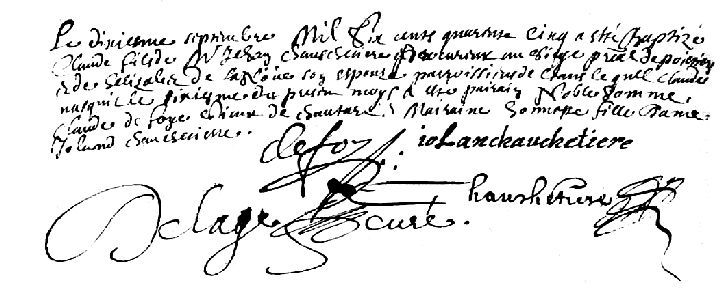 Le dixiesme septembre Mil Six cents quarante cinq a esté baptizé
Claude fils de Mr Jehan Chauschetiere procureur au siege prãl de poictiers
& de Elizabet de son espouze parroissiens de ceans lequel Claude
nasquit le sixiesme du present moys a esté pairain Noble homme
Claude de foye de mairaine honneste fille Dame
Yoland Chauschetiere.
defoy. ioLanchauchetiere
hauchetiere
Delage curé.